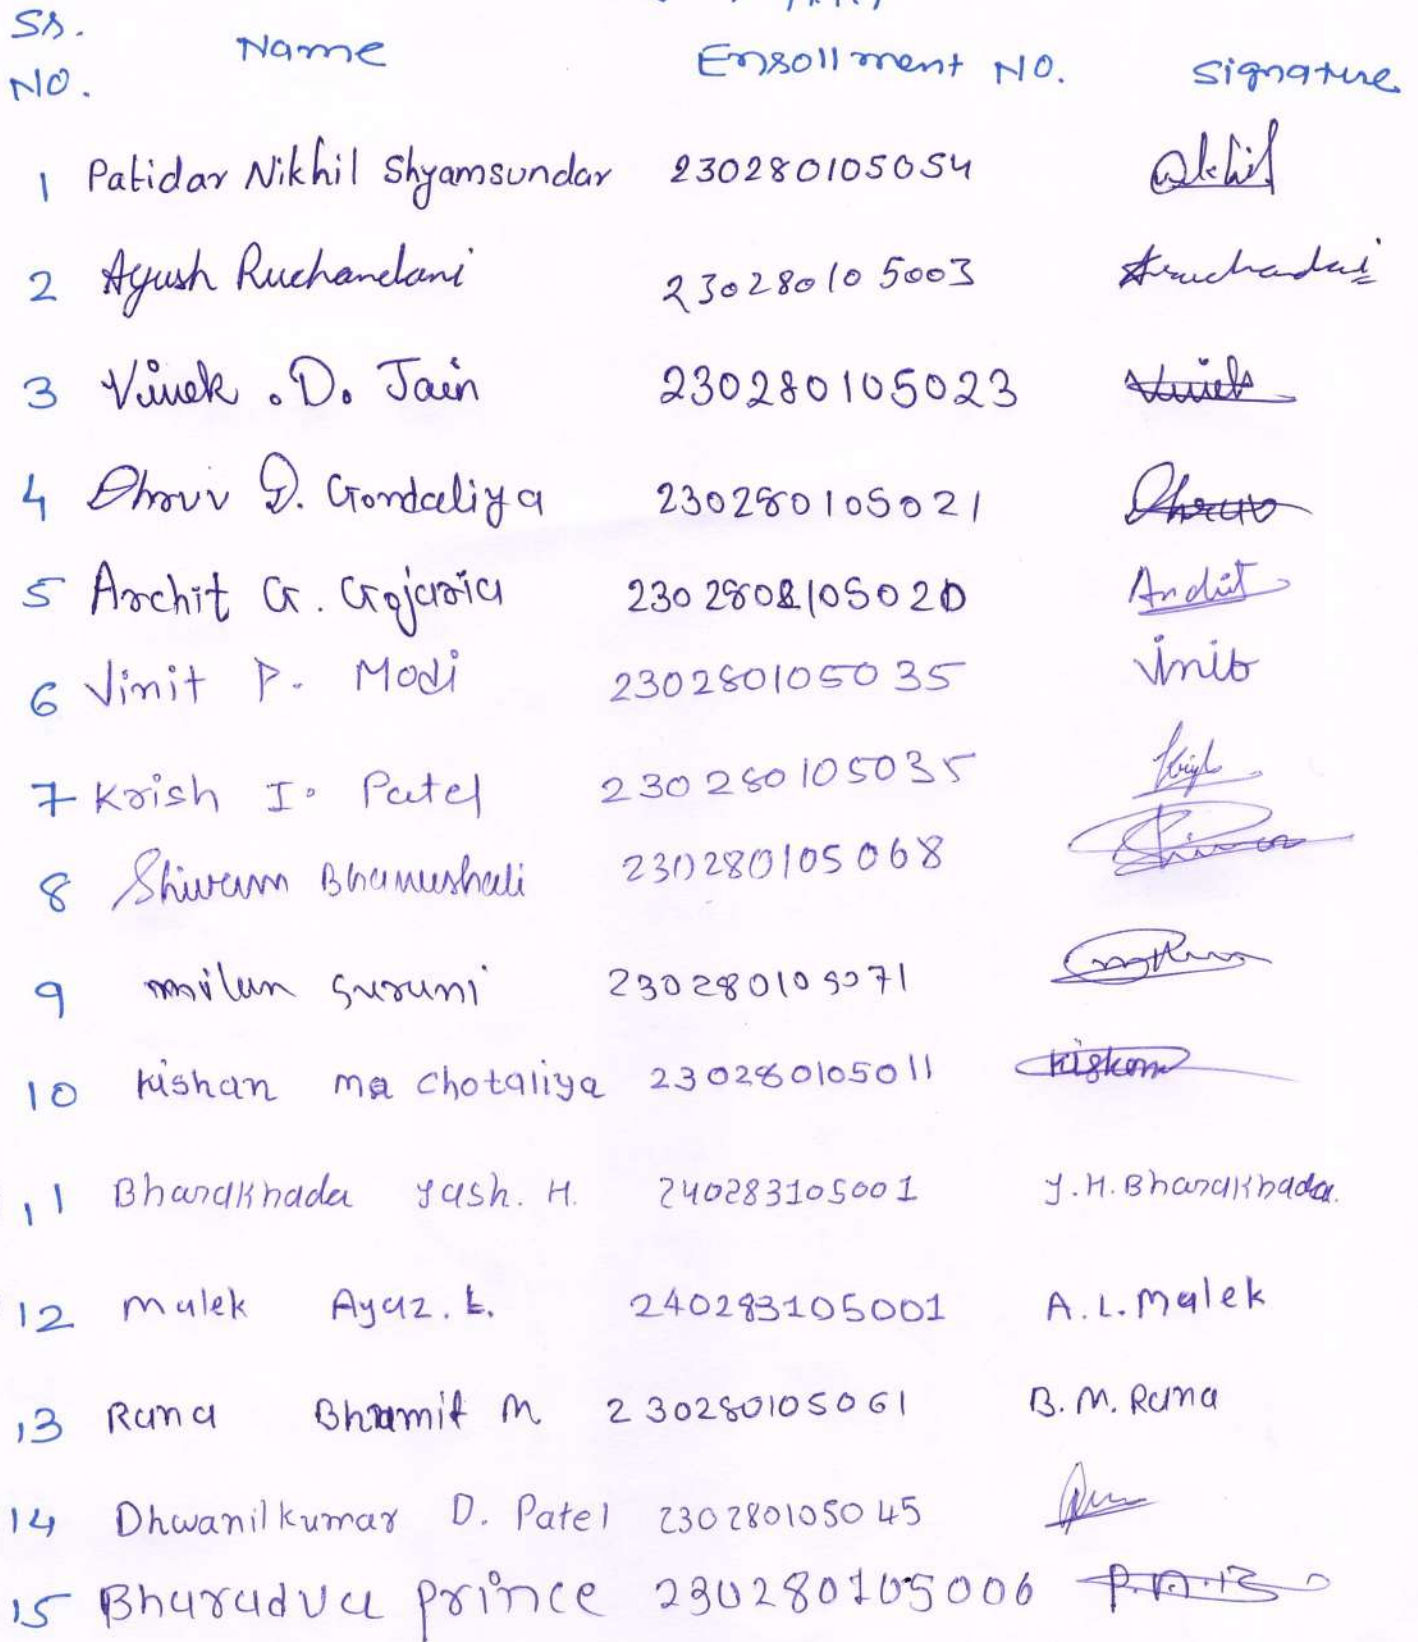 Sr. No. Name Enrollment No. Signature
1 Patidar Nikhil Shyamsundar 230280105054
2 Ayush Ruchandani 230280105003 Aruchandani
3 Vivek . D. Jain 230280105023 Vivek
4 Dhruv D. Gondaliya 230280105021 Dhruv
5 Archit G. Gojaria 230280105020 Archit
6 Vinit P. Modi 230280105035 Vinit
7 Krish I. Patel 230280105035
8 Shivam Bhanushali 230280105068 Shivam
9 milan surani 230280105071
10 kishan ma chotaliya 230280105011 kishan
11 Bharakhada Yash. H. 240283105001 Y.H.Bharakhada.
12 Malek Ayaz. L. 240283105001 A.L.Malek
13 Rana Bhramit M 230280105061 B.M.Rana
14 Dhwanilkumar D. Patel 230280105045
15 Bharadva prince 230280105006